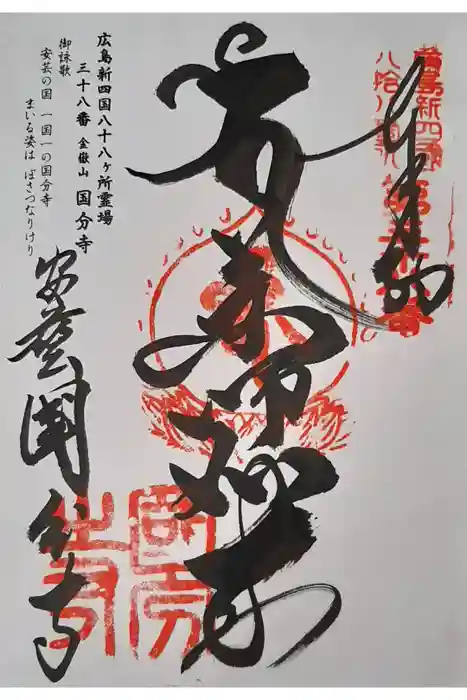 奉納
薬師如来
広島新四国八十八ヶ所霊場
三十八番 金嶽山 国分寺
御詠歌
安芸の国 一国一の国分寺
まいる姿は ぼさつなりけり
安藝国分寺
國分之寺